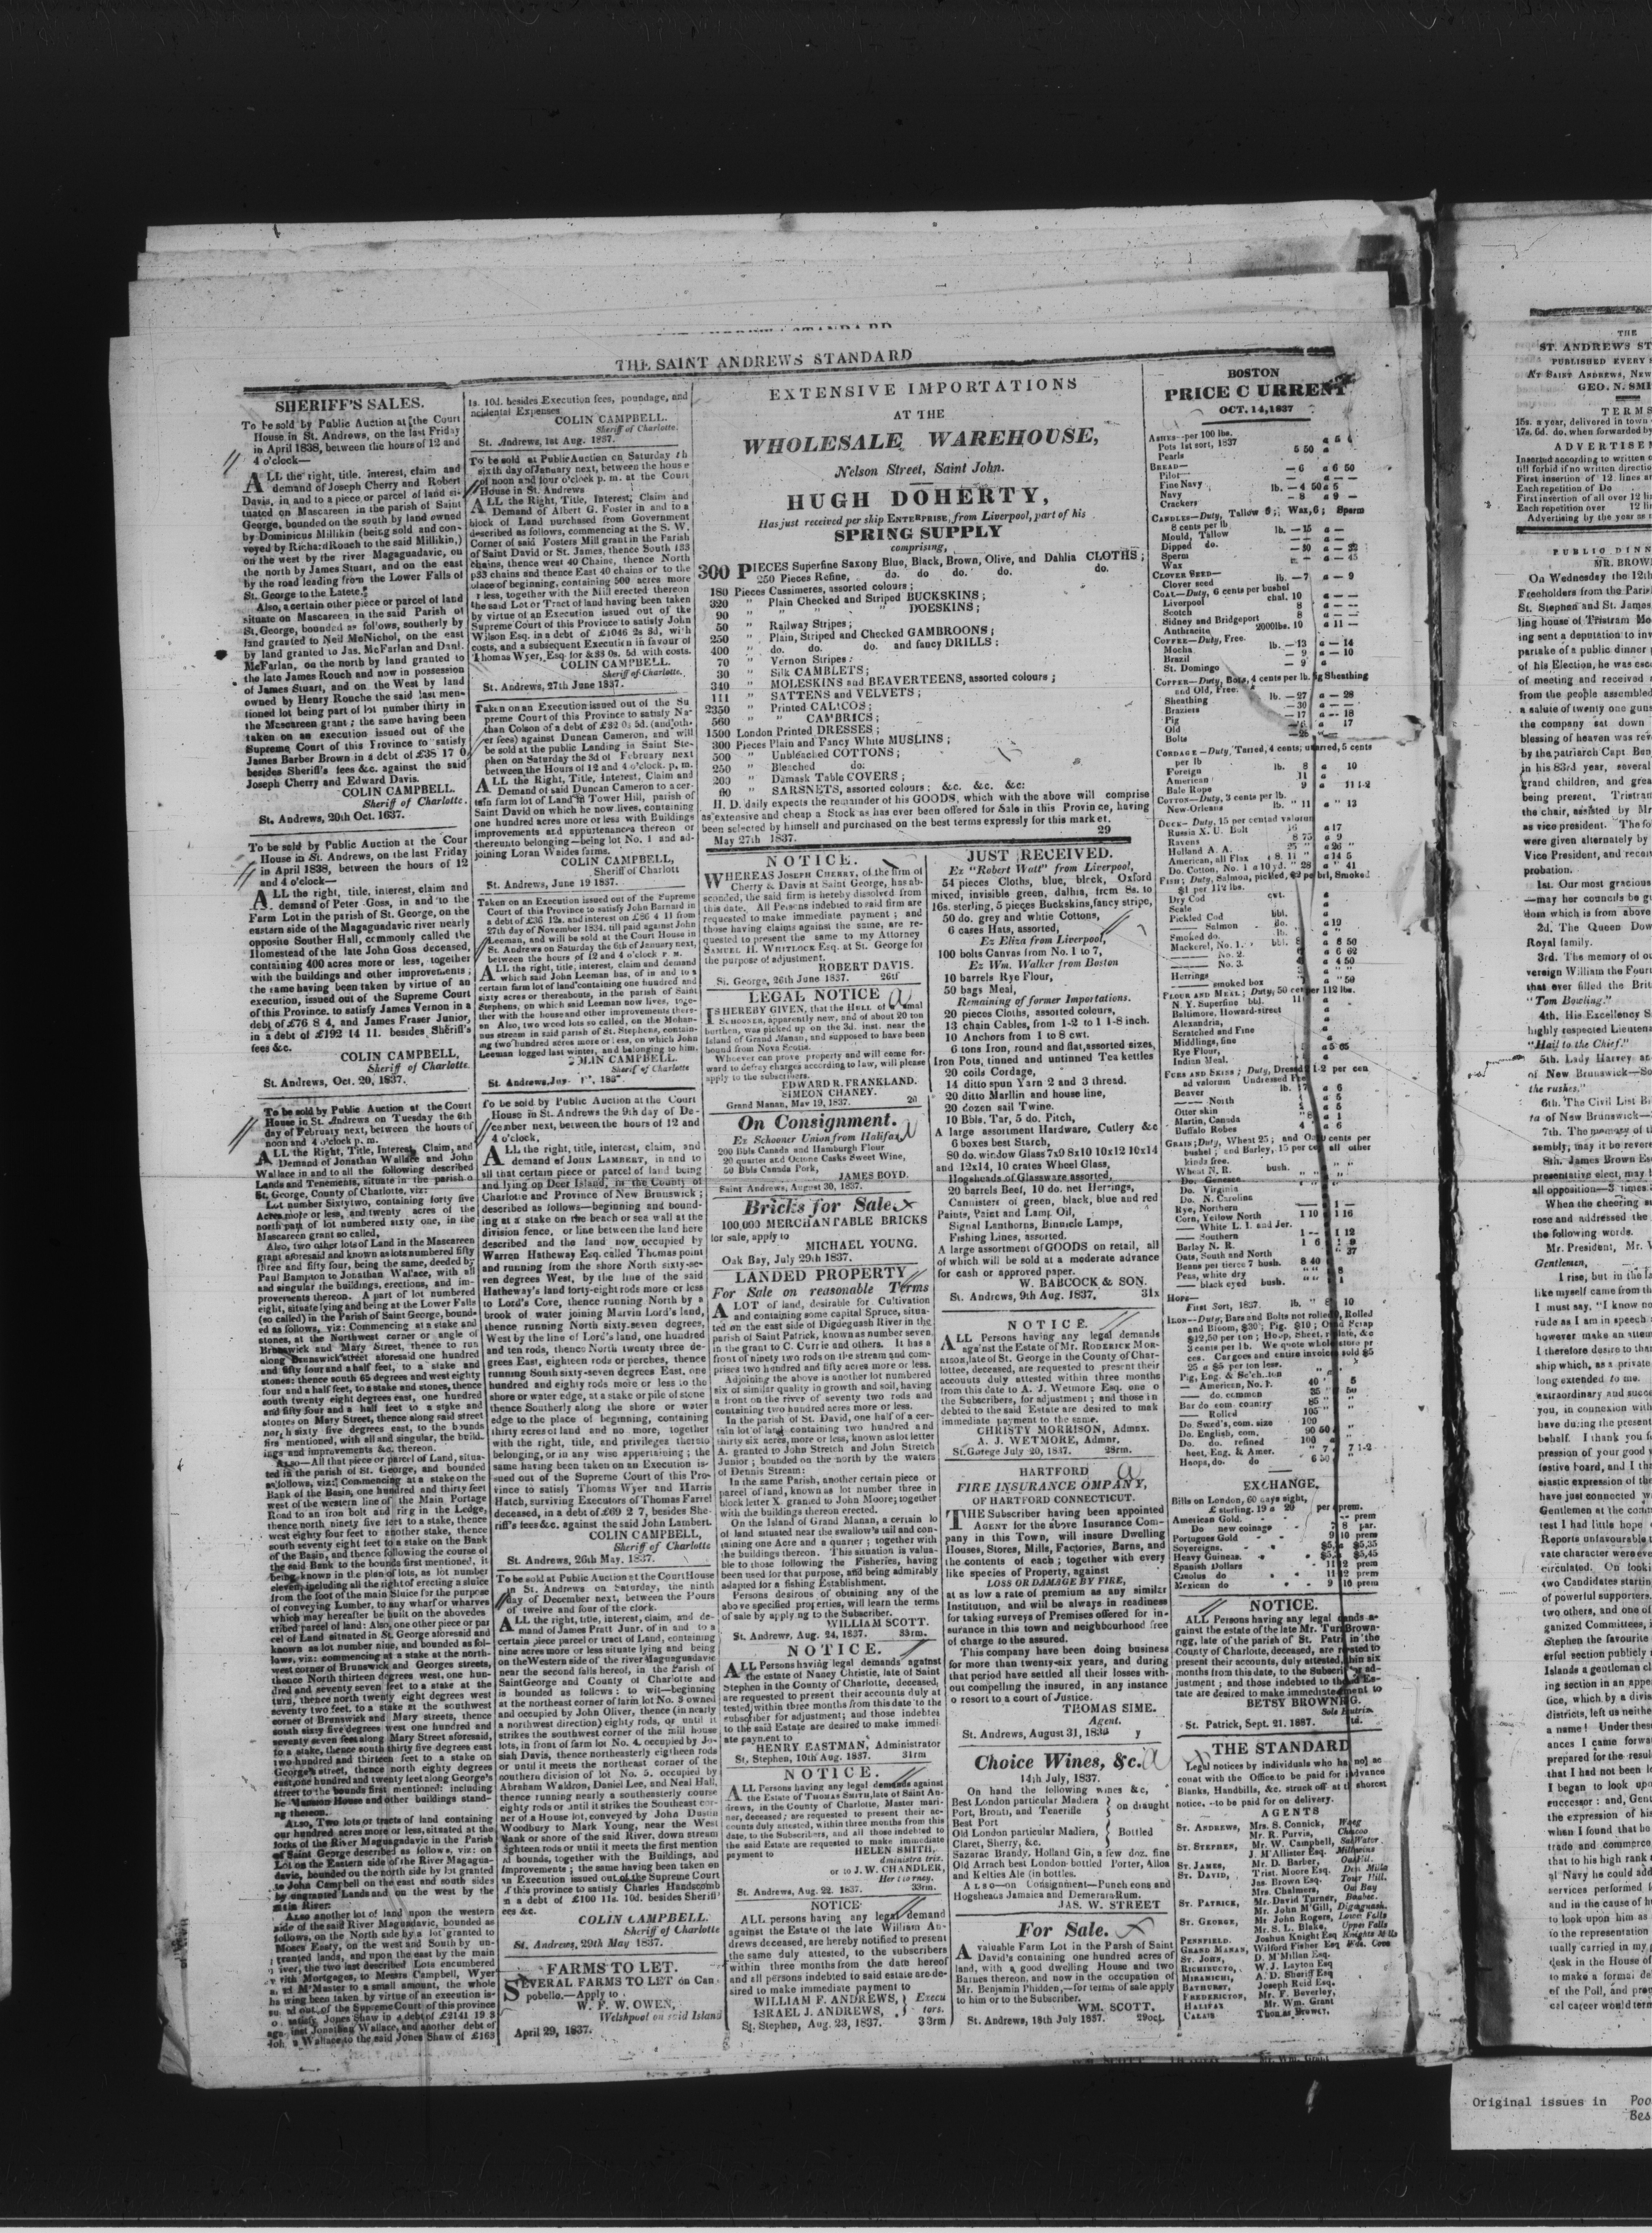 THE SAINT ANDREWS STANDARD
SHERIFF'S SALES.
To be sold by Public Auction at the Court
House in St. Andrews, on the last Friday
in April 1838, between the hours of 12 and
4 o'clock—
ALL the right, title, interest, claim and
demand of Joseph Cherry and Robert
Davis, in and to a piece or parcel of land si-
tuated on Mascareen in the parish of Saint
George, bounded on the south by land owned
by Dominicus Millikin (being sold and con-
veyed by Richard Rouch to the said Millikin,)
on the west by the river Magaguadavic, on
the north by James Stuart, and on the east
by the road leading from the Lower Falls of
St. George to the Latete.
Also, a certain other piece or parcel of land
situate on Mascareen in the said Parish of
St. George, bounded as follows, southerly by
land granted to Neil McNichol, on the east
by land granted to Jas. McFarlan and Danl.
McFarlan, on the north by land granted to
the late James Rouch and now in possession
of James Stuart, and on the West by land
owned by Henry Rouche the said last men-
tioned lot being part of lot number thirty in
the Mascareen grant; the same having been
taken on an execution issued out of the
Supreme Court of this Province to satisfy
James Barber Brown in a debt of £35 17 0
besides Sheriff's fees &c. against the said
Joseph Cherry and Edward Davis.
COLIN CAMPBELL.
Sheriff of Charlotte.
St. Andrews, 20th Oct. 1637.
To be sold by Public Auction at the Cour
House in St. Andrews, on the last Friday
in April 1838, between the hours of 12
and 4 o'clock—
ALL the right, title, interest, claim and
demand of Peter Goss, in and to the
Farm Lot in the parish of St. George, on the
eastern side of the Magaguadavic river nearly
opposite Souther Hall, commonly called the
Homestead of the late John Goss deceased,
containing 400 acres more or less, together
with the buildings and other improvements;
the same having been taken by virtue of an
execution, issued out of the Supreme Court
of this Province. to satisfy James Vernon in a
debt of £76 8 4, and James Fraser Junior,
in a debt of £192 14 11. besides Sheriff's
fees &c.
COLIN CAMPBELL,
Sheriff of Charlotte.
St. Andrews, Oct. 20, 1837.
To be sold by Public Auction at the Court
House in St. Andrews on Tuesday the 6th
day of February next, between the hours of
noon and 4 o'clock p. m.
ALL the Right, Title, Interest, Claim, and
Demand of Jonathan Wallace and John
Wallace in and to all the following described
Lands and Tenements, situate in the parish o
St. George, County of Charlotte, viz:
Lot number Sixty two, containing forty five
Acres more or less, and twenty acres of the
north part of lot numbered sixty one, in the
Mascareen grant so called,
Also, two other lots of Land in the Mascareen
grant aforesaid and known as lots numbered fifty
three and fifty four, being the same, deeded by
Paul Bampton to Jonathan Wallace, with all
and singular the buildings, erections, and im-
provements thereon. A part of lot numbered
eight, situate lying and being at the Lower Falls
(so called) in the Parish of Saint George, bound-
ed as follows, viz: Commencing at a stake and
stones, at the Northwest corner or angle of
Brunswick and Mary Street, thence to run
along Brunswick street aforesaid one hundred
and fifty four and a half feet, to a stake and
stones: thence south 65 degrees and west eighty
four and a half feet, to a stake and stones, thence
south twenty eight degrees east, one hundred
and fifty four and a half feet to a stake and
stones on Mary Street, thence along said street
north sixty five degrees east, to the bounds
first mentioned, with all and singular, the build-
ings and improvements &c. thereon.
ALSO—All that piece or parcel of Land, situa-
ted in the parish of St. George, and bounded
as follows, viz: Commencing at a stake on the
Bank of the Basin, one hundred and thirty feet
west of the western line of the Main Portage
Road to an iron bolt and ring in the Ledge,
thence north ninety five feet to a stake, thence
west eighty four feet to another stake, thence
south seventy eight feet to a stake on the Bank
of the Basin, and thence following the course of
the said Bank to the bounds first mentioned, it
being known in the plan of lots, as lot number
eleven, including all the right of erecting a sluice
from the foot of the main Sluice for the purpose
of conveying Lumber, to any wharf or wharves
which may hereafter be built on the abovedes
cribed parcel of land: Also, one other piece or par
cel of Land situated in St. George aforesaid and
known as lot number nine, and bounded as fol-
lows, viz: commencing at a stake at the north-
west corner of Brunswick and Georges streets,
thence North thirteen degrees west, one hun-
dred and seventy seven feet to a stake at the
turn, thence north twenty eight degrees west
seventy two feet, to a stake at the southwest
corner of Brunswick and Mary streets, thence
south sixty five degrees west one hundred and
seventy seven feet along Mary Street aforesaid,
to a stake, thence south thirty five degrees east
two hundred and thirteen feet to a stake on
George's street, thence north eighty degrees
east, one hundred and twenty feet along George's
street to the bounds first mentioned: including
he Mansion House and other buildings stand-
ng thereon.
Also, Two lots or tracts of land containing
our hundred acres more or less, situated at the
forks of the River Magaguadavic in the Parish
of Saint George described as follows, viz: on
Lot on the Eastern side of the River Magagua-
davic, bounded on the north side by lot granted
to John Campbell on the east and south sides
by ungranted Lands and on the west by the
main River.
ALSO another lot of land upon the western
side of the said River Magaudavic, bounded as
follows, on the North side by a lot granted to
Moses Easty, on the west and South by un-
granted lands, and upon the east by the main
river, the two last described Lots encumbered
with Mortgages, to Messrs Campbell, Wyer
and McMaster to a small amount, the whole
having been taken by virtue of an execution is-
sued out of the Supreme Court of this province
to satisfy Jones Shaw in a debt of £2141 19 3
against Jonathan Wallace, and another debt of
John Wallace to the said Jones Shaw of £163
1s. 10d. besides Execution fees, poundage, and
ncidental Expenses
COLIN CAMPBELL.
Sheriff of Charlotte.
St. Andrews, 1st Aug. 1837.
To be sold at Public Auction on Saturday th
sixth day of January next, between the hous e
of noon and four o'clock p. m. at the Court
House in St. Andrews
ALL the Right, Title, Interest, Claim and
Demand of Albert G. Foster in and to a
block of Land purchased from Government
described as follows, commencing at the S. W.
Corner of said Fosters Mill grant in the Parish
of Saint David or St. James, thence South 133
chains, thence west 40 Chains, thence North
p33 chains and thence East 40 chains or to the
place of beginning, containing 500 acres more
r less, together with the Mill erected thereon
the said Lot or Tract of land having been taken
by virtue of an Execution issued out of the
Supreme Court of this Province to satisfy John
Wilson Esq. in a debt of £1046 2s 3d, with
costs, and a subsequent Execution in favour of
Thomas Wyer, Esq. for £33 0s. 5d with costs.
COLIN CAMPBELL.
Sheriff of Charlotte.
St. Andrews, 27th June 1837.
Taken on an Execution issued out of the Su
preme Court of this Province to satisfy Na-
than Colson of a debt of £32 0s 5d. (and oth-
er fees) against Duncan Cameron, and will
be sold at the public Landing in Saint Ste-
phen on Saturday the 3d of February next
between the Hours of 12 and 4 o'clock. p. m.
ALL the Right, Title, Interest, Claim and
Demand of said Duncan Cameron to a cer-
tain farm lot of Land in Tower Hill, parish of
Saint David on which he now lives, containing
one hundred acres more or less with Buildings
improvements and appurtenances thereon or
thereunto belonging—being lot No. 1 and ad-
joining Loran Waides farms.
COLIN CAMPBELL,
Sheriff of Charlott
St. Andrews, June 19 1837.
Taken on an Execution issued out of the Fupreme
Court of this Province to satisfy John Barnard in
a debt of £36 12s. and interest on £86 4 11 from
27th day of November 1834. till paid against John
Leeman, and will be sold at the Court House in
St. Andrews on Saturday the 6th of January next,
between the hours of 12 and 4 o'clock P. M.
ALL the right, title, interest, claim and demand
which said John Leeman has, of in and to a
certain farm lot of land containing one hundred and
sixty acres or thereabouts, in the parish of Saint
Stephens, on which said Leeman now lives, toge-
ther with the house and other improvements there-
on Also, two wood lots so called, on the Mohan-
nus stream in said parish of St. Stephens, contain-
ing two hundred acres more or less, on which John
Leeman logged last winter, and belonging to him.
COLIN CAMPBELL.
Sheriff of Charlotte
To be sold by Public Auction at the Court
House in St. Andrews the 9th day of De-
cember next, between the hours of 12 and
4 o'clock.
ALL the right, title, interest, claim, and
demand of JOHN LAMBERT, in and to
all that certain piece or parcel of land being
and lying on Deer Island, in the County of
Charlotte and Province of New Brunswick;
described as follows—beginning and bound-
ing at a stake on the beach or sea wall at the
division fence, or line between the land here
described and the land now occupied by
Warren Hatheway Esq. called Thomas point
and running from the shore North sixty-se-
ven degrees West, by the line of the said
Hatheway's land forty-eight rods more or less
to Lord's Cove, thence running North by a
brook of water joining Marvin Lord's land,
thence running North sixty-seven degrees,
West by the line of Lord's land, one hundred
and ten rods, thence North twenty three de-
grees East, eighteen rods or perches, thence
running South sixty-seven degrees East, one
hundred and eighty rods more or less to the
shore or water edge, at a stake or pile of stone
thence Southerly along the shore or water
edge to the place of beginning, containing
thirty acres of land and no more, together
with the right, title, and privileges thereto
belonging, or in any wise appertaining; the
same having been taken on an Execution is-
sued out of the Supreme Court of this Pro-
vince to satisfy Thomas Wyer and Harris
Hatch, surviving Executors of Thomas Farrel
deceased, in a debt of £69 2 7, besides She-
riff's fees &c. against the said John Lambert.
COLIN CAMPBELL,
Sheriff of Charlotte
St. Andrews, 26th May. 1837.
To be sold at Public Auction at the Court House
in St. Andrews on Saturday, the ninth
day of December next, between the Hours
of twelve and four of the clock.
ALL the right, title, interest, claim, and de-
mand of James Pratt Junr. of in and to a
certain piece parcel or tract of Land, containing
nine acres more or less situate lying and being
on the Western side of the river Magaguadavic
near the second falls hereof, in the Parish of
Saint George and County of Charlotte and
is bounded as follows: to wit—beginning
at the northeast corner of farm lot No. 3 owned
and occupied by John Oliver, thence (in nearly
a northwest direction) eighty rods, or until it
strikes the southwest corner of the mill house
lots, in front of farm lot No. 4. occupied by Jo-
siah Davis, thence northeasterly eigtheen rods
or until it meets the northeast corner of the
southern division of lot No. 5. occupied by
Abraham Waldron, Daniel Lee, and Neal Hall,
thence running nearly a southeasterly course
eighty rods or until it strikes the Southeast cor-
ner of a House lot, conveyed by John Dustin
Woodbury to Mark Young, near the West
Bank or shore of the said River, down stream
eighteen rods or until it meets the first mention
ed bounds, together with the Buildings, and
Improvements; the same having been taken on
an Execution issued out of the Supreme Court
of this province to satisfy Charles Handscomb
in a debt of £100 11s. 10d. besides Sheriff
ees &c.
COLIN CAMPBELL.
Sheriff of Charlotte
St. Andrews, 29th May 1837.
FARMS TO LET.
SEVERAL FARMS TO LET on Can-
pobello.—Apply to
W. F. W. OWEN,
Welshpool on said Island
April 29, 1837.
EXTENSIVE IMPORTATIONS
AT THE
WHOLESALE WAREHOUSE,
Nelson Street, Saint John.
HUGH DOHERTY,
Has just received per ship ENTERPRISE, from Liverpool, part of his
SPRING SUPPLY
comprising,
300 PIECES Superfine Saxony Blue, Black, Brown, Olive, and Dahlia CLOTHS;
250 Pieces Refine, do. do do. do. do.
180 Pieces Cassimeres, assorted colours;
320 " Plain Checked and Striped BUCKSKINS;
90 " " " " DOESKINS;
50 " Railway Stripes;
250 " Plain, Striped and Checked GAMBROONS;
400 " do. do. do. and fancy DRILLS:
70 " Vernon Stripes:
30 " Silk CAMBLETS;
340 " MOLESKINS and BEAVERTEENS, assorted colours;
111 " SATTENS and VELVETS;
2350 " Printed CALICOS;
560 " " CAMBRICS;
1500 London Printed DRESSES;
300 Pieces Plain and Fancy White MUSLINS;
500 " Unbleached COTTONS;
250 " Bleached do:
200 " Damask Table COVERS;
60 " SARSNETS, assorted colours: &c. &c. &c:
H. D. daily expects the remainder of his GOODS, which with the above will comprise
as extensive and cheap a Stock as has ever been offered for Sale in this Province, having
been selected by himself and purchased on the best terms expressly for this market.
May 27th 1837. 29
NOTICE.
WHEREAS JOSEPH CHERRY, of the firm of
Cherry & Davis at Saint George, has ab-
sconded, the said firm is hereby dissolved from
this date. All Persons indebted to said firm are
requested to make immediate payment; and
those having claims against the same, are re-
quested to present the same to my Attorney
SAMUEL H. WHITLOCK Esq. at St. George for
the purpose of adjustment.
ROBERT DAVIS.
St. George, 26th June 1837. 26tf
LEGAL NOTICE
IS HEREBY GIVEN, that the HULL of a small
SCHOONER, apparently new, and of about 20 ton
burthen, was picked up on the 3d. inst. near the
Island of Grand Manan, and supposed to have been
bound from Nova Scotia.
Whoever can prove property and will come for-
ward to defray charges according to law, will please
apply to the subscribers.
EDWARD R. FRANKLAND.
SIMEON CHANEY.
Grand Manan, May 19, 1837. 20
On Consignment.
Ex Schooner Union from Halifax
200 Bbls Canada and Hamburgh Flour
20 quarter and Octave Casks Sweet Wine,
50 Bbls Canada Pork,
JAMES BOYD.
Saint Andrews, August 30, 1837.
Bricks for Sale
100,000 MERCHANTABLE BRICKS
for sale, apply to
MICHAEL YOUNG.
Oak Bay, July 29th 1837.
LANDED PROPERTY
For Sale on reasonable Terms
A LOT of land, desirable for Cultivation
and containing some capital Spruce, situa-
ted on the east side of Digdeguash River in the
parish of Saint Patrick, known as number seven,
in the grant to C. Currie and others. It has a
front of ninety two rods on the stream and com-
prises two hundred and fifty acres more or less.
Adjoining the above is another lot numbered
six of similar quality in growth and soil, having
a front on the river of seventy two rods and
containing two hundred acres more or less.
In the parish of St. David, one half of a cer-
tain lot of land containing two hundred and
thirty six acres, more or less, known as lot letter
A. granted to John Stretch and John Stretch
Junior; bounded on the north by the waters
of Dennis Stream:
In the same Parish, another certain piece or
parcel of land, known as lot number three in
block letter X. granted to John Moore; together
with the buildings thereon erected.
On the Island of Grand Manan, a certain lo
of land situated near the swallow's tail and con-
taining one Acre and a quarter; together with
the buildings thereon. This situation is valua-
ble to those following the Fisheries, having
been used for that purpose, and being admirably
adapted for a fishing Establishment.
Persons desirous of obtaining any of the
above specified properties, will learn the terms
of sale by applying to the Subscriber.
WILLIAM SCOTT.
St. Andrews, Aug. 24, 1837. 33rm.
NOTICE.
ALL Persons having legal demands against
the estate of Nancy Christie, late of Saint
Stephen in the County of Charlotte, deceased,
are requested to present their accounts duly at
tested, within three months from this date to the
subscriber for adjustment; and those indebted
to the said Estate are desired to make immedi-
ate payment to
HENRY EASTMAN, Administrator
St. Stephen, 10th Aug. 1837. 31rm
NOTICE.
ALL Persons having any legal demands against
the Estate of THOMAS SMITH, late of Saint An-
drews, in the County of Charlotte, Master mari-
ner, deceased; are requested to present their ac-
counts duly attested, within three months from this
date, to the Subscribers, and all those indebted to
the said Estate are requested to make immediate
payment to
HELEN SMITH,
dministra trix.
or to J. W. CHANDLER,
Her ttorney.
St. Andrews, Aug. 22. 1837. 33rm.
NOTICE.
ALL persons having any legal demand
against the Estate of the late William An-
drews deceased, are hereby notified to present
the same duly attested, to the subscribers
within three months from the date hereof
and all persons indebted to said estate are de-
sired to make immediate payment to
WILLIAM F. ANDREWS, } Execu
ISRAEL J. ANDREWS, } tors.
St. Stephen, Aug. 23, 1837. 33rm
JUST RECEIVED.
Ex "Robert Watt" from Liverpool,
54 pieces Cloths, blue, black, Oxford
mixed, invisible green, dalhia, from 8s. to
16s. sterling, 5 pieces Buckskins, fancy stripe,
50 do. grey and whtie Cottons,
6 cases Hats, assorted,
Ex Eliza from Liverpool,
100 bolts Canvas from No. 1 to 7,
Ex Wm. Walker from Boston
10 barrels Rye Flour,
50 bags Meal,
Remaining of former Importations.
20 pieces Cloths, assorted colours,
13 chain Cables, from 1-2 to 1 1-8 inch.
10 Anchors from 1 to 8 cwt.
6 tons Iron, round and flat, assorted sizes,
Iron Pots, tinned and untinned Tea kettles
20 coils Cordage,
14 ditto spun Yarn 2 and 3 thread.
20 ditto Marllin and house line,
20 dozen sail Twine.
10 Bbls. Tar, 5 do. Pitch,
A large assortment Hardware, Cutlery &c
6 boxes best Starch,
80 do. window Glass 7x9 8x10 10x12 10x14
and 12x14, 10 crates Wheel Glass,
Hogsheads of Glassware assorted,
20 barrels Beef, 10 do. net Herrings,
Cannisters of green, black, blue and red
Paints, Paint and Lamp Oil,
Signal Lanthorns, Binnicle Lamps,
Fishing Lines, assorted.
A large assortment of GOODS on retail, all
of which will be sold at a moderate advance
for cash or approved paper.
W. BABCOCK & SON.
St. Andrews, 9th Aug. 1837. 31x
NOTICE.
ALL Persons having any legal demands
against the Estate of Mr. RODERICK MOR-
RISON, late of St. George in the County of Char-
lottee, deceased, are requested to present their
accounts duly attested within three months
from this date to A. J. Wetmore Esq. one o
the Subscribers, for adjustment; and those in
debted to the said Estate are desired to mak
immediate payment to the same.
CHRISTY MORRISON, Admnx.
A. J. WETMORE, Admnr,
St. George July 20, 1837. 28rm.
HARTFORD
FIRE INSURANCE OMPANY,
OF HARTFORD CONNECTICUT.
THE Subscriber having been appointed
AGENT for the above Insurance Com-
pany in this Town, will insure Dwelling
Houses, Stores, Mills, Factories, Barns, and
the contents of each; together with every
like species of Property, against
LOSS OR DAMAGE BY FIRE,
at as low a rate of premium as any similar
Institution, and will be always in readiness
for taking surveys of Premises offered for in-
surance in this town and neighbourhood free
of charge to the assured.
This company have been doing business
for more than twenty-six years, and during
that period have settled all their losses with-
out compelling the insured, in any instance
o resort to a court of Justice.
THOMAS SIME.
Agent.
St. Andrews, August 31, 1836 y
Choice Wines, &c.
14th July, 1837.
On hand the following wines &c,
Best London particular Madiera } on draught
Port, Bronti, and Teneriffe
Best Port
Old London particular Madiera, } Bottled
Claret, Sherry, &c.
Sazarac Brandy, Holland Gin, a few doz. fine
Old Arrach best London bottled Porter, Alloa
and Kelties Ale (in bottles.
ALSO—on Consignment—Puncheons and
Hogsheads Jamaica and Demerara Rum.
JAS. W. STREET
For Sale.
A valuable Farm Lot in the Parish of Saint
David's containing one hundred acres of
land, with a good dwelling House and two
Barnes thereon, and now in the occupation of
Mr. Benjamin Phidden,—for terms of sale apply
to him or to the Subscriber.
WM. SCOTT.
St. Andrews, 18th July 1837. 29oct.
BOSTON
PRICE CURRENT
OCT. 14, 1837
ASHES--per 100 lbs.
Pots 1st sort, 1837
Pearls 5 50 a
BREAD—
Pilot— — 6 a 6 50
Fine Navy
Navy lb. — 4 50 a 5
Crackers — 8 a 9 —
CANDLES—Duty, Tallow 5; Wax, 6; Sperm
8 cents per lb
Mould, Tallow lb. — 15 a —
Dipped do.
Sperm — 30 a — 32
Wax — a — 45
CLOVER SEED—
Clover seed lb. — 7 a — 9
COAL—Duty, 6 cents per bushel
Liverpool chal. 10 a — —
Scotch 8 a — —
Sidney and Bridgeport 8 a — —
Anthracite 2000lbs. 10 a 11 —
COFFEE—Duty, Free.
Mocha lb. — 13 a — 14
Brazil — 9 a — 10
St. Domingo — 9 a
COPPER—Duty, Bars, 4 cents per lb. Pig Sheathing
and Old, Free.
Sheathing lb. — 27 a — 28
Braziers — 30 a — —
Pig — 17 a — 18
Old a 17
Bolts
CORDAGE—Duty, Tarred, 4 cents; untarred, 5 cents
per lb
Foreign lb. 8 a 10
American 11 a
Bale Rope 9 a 11 1-2
COTTON—Duty, 3 cents per lb.
New-Orleans lb. " 11 a " 13
DUCK—Duty, 15 per cent ad valorum
Russia X. U. Bolt 16 a 17
Ravens 8 75 a 9
Holland A. A. 25 " a 26 "
American, all Flax 8. 11 " a 14 5
Do. Cotton, No. 1 a 10 yd. " 28 a " 41
FISH; Duty, Salmon, pickled, $2 per bbl, Smoked
$1 per 112 lbs.
Dry Cod cwt.
Scale
Pickled Cod bbl.
—— Salmon do. a 19
Smoked do. lb.
Mackerel, No. 1. bbl. 8 a 8 50
—— No. 2. a 6 62
—— No. 3. a 4 50
Herrings
—— smoked box a 50
FLOUR AND MEAL; Duty, 50 cents per 112 lbs.
N. Y. Superfine bbl. 11
Baltimore, Howard-street
Alexandria,
Scratched and Fine
Middlings, fine
Rye Flour, a 5 65
Indian Meal.
FURS AND SKINS; Duty, Dressed 12 1-2 per cen
ad valorum Undressed Free
Beaver lb.
—— North
Otter skin
Martin, Canada
Buffalo Robes
GRAIN; Duty, Wheat 25; and Oats cents per
bushel; and Barley, 15 per cent all other
kinds free.
Wheat N. R. bush.
Do. Genesee
Do. Virginia
Do. N. Carolina
Rye, Northern
Corn, Yellow North 1 10 1 16
—— White L. I. and Jer.
—— Southern 1 — 1 12
Barlay N. R. 1 6
Oats, South and North " 37
Beans per tierce 7 bush. 8 40
Peas, white dry
—— black eyed bush.
HOPS—
First Sort, 1837. lb. 10
IRON—Duty; Bars and Bolts not rolled, Rolled
and Bloom, $30; Pig, $10; Old Scrap
$12,50 per ton; Hoop, Sheet, &c
3 cents per lb. We quote wholesale
Cargoes and entire invoices sold $5
25 a $5 per ton less.
Pig, Eng. & Sc'ch. ton
— American, No. 1. 40
— do. common 35 " 50
Bar do com. country 85 "
—— Rolled 105 "
Do Swed's, com. size 100
Do. English, com, 90 50
Do. do. refined 100
heet, Eng. & Amer. " 7 7 1-2
Hoops, do. do 6 50
EXCHANGE.
Bills on London, 60 days sight,
£ sterling. 19 a 20 per prem.
American Gold. prem
Do new coinage 7 8 par.
Portugese Gold 9 10 prem
Sovereigns, $5, a $5,35
Heavy Guineas. $5, a $5,45
Spanish Dollars 11 12 prem
Carolus do 11 12 prem
Mexican do 9 10 prem
NOTICE.
ALL Persons having any legal demands a-
gainst the estate of the late Mr. Brown-
rigg, late of the parish of St. Patrick in the
County of Charlotte, deceased, are requested to
present their accounts, duly attested, within six
months from this date, to the Subscriber for ad-
justment; and those indebted to the said Es-
tate are desired to make immediate payment to
BETSY BROWNRIGG.
Sole
St. Patrick, Sept. 21. 1837.
THE STANDARD
Legal notices by individuals who have not ac
count with the Office to be paid for in advance
Blanks, Handbills, &c. struck off at the shorest
notice.—to be paid for on delivery.
AGENTS
ST. ANDREWS, Mrs. S. Connick,
Mr. R. Purvis,
ST. STEPHEN, Mr. W. Campbell,
J. M'Allister Esq. Milltown
ST. JAMES, Mr. D. Barber, Oak Hill.
ST. DAVID, Trist. Moore Esq. Den. Mills
Jas. Brown Esq. Tower Hill.
Mrs. Chalmers, Oak Bay
ST. PATRICK, Mr. David Turner,
Mr. John M'Gill, Digdeguash.
ST. GEORGE, Mr John Rogers, Lower Falls
Mr. S. L. Blake, Upper Falls
PENNFIELD. Joshua Knight Esq Knights Mills
GRAND MANAN, Wilford Fisher Esq
ST. JOHN, D. M'Millan Esq.
RICHIBUCTO, W. J. Layton Esq
MIRAMICHI, A. D. Sheriff Esq
BATHURST, Joseph Reid Esq.
FREDERICTON, Mr. F. Beverley,
HALIFAX Mr. Wm. Grant
CALAIS Thomas Brewer.
THE
ST. ANDREWS ST
PUBLISHED EVERY
AT SAINT ANDREWS, NEW
GEO. N. SMI
TERMS
15s. a year, delivered in town
17s. 6d. do, when forwarded by
ADVERTISE
Inserted according to written o
till forbid if no written directio
First insertion of 12 lines an
Each repetition of Do
First insertion of all over 12 li
Each repetition over 12 li
Advertising by the year as
PUBLIC DINN
MR. BROW
On Wednesday the 12th
Freeholders from the Paris
St. Stephen and St. James
ling house of Tristram Mo
ing sent a deputation to inv
partake of a public dinner
of his Election, he was esco
of meeting and received
from the people assembled
a salute of twenty one guns
the company sat down
blessing of heaven was rev
by the patriarch Capt Ben
in his 83rd year, several
grand children, and grea
being present. Tristran
the chair, assisted by Mr
as vice president. The fo
were given alternately by
Vice President, and receiv
probation.
1st. Our most gracious
—may her councils be gu
dom which is from above
2d. The Queen Dow
Royal family.
3rd. The memory of ou
vereign William the Fourt
that ever filled the Brit
"Tom Bowling."
4th. His Excellency S
highly respected Lieuten
"Hail to the Chief."
5th. Lady Harvey an
of New Brunswick—So
the rushes."
6th. The Civil List Bi
ta of New Brunswick—
7th. The memory of th
sembly, may it be revere
8th. James Brown Es
presentative elect, may
all opposition—3 times
When the cheering su
rose and addressed the
the following words.
Mr. President, Mr. V
Gentlemen,
I rise, but in the la
like myself came from th
I must say, "I know no
rude as I am in speech
however make an attem
I therefore desire to than
ship which, as a private
long extended to me.
extraordinary and succe
you, in connexion with
have during the present
behalf. I thank you f
pression of your good
festive board, and I tha
siastic expression of the
have just connected w
Gentlemen at the comm
test I had little hope
Reports unfavourable t
vate character were eve
circulated. On looki
two Candidates startin
of powerful supporters.
two others, and one of
ganized Committees, i
Stephen the favourite
erful section publicly
Islands a gentleman cl
ing section in an appe
fice, which by a divis
districts, left us neithe
a name! Under these
ances I came forwa
prepared for the resul
that I had not been lo
I began to look upo
successor: and, Gent
the expression of his
when I found that bo
trade and commerce
that to his high rank
al Navy he could add
services performed l
and in the cause of hu
to look upon him as
to the representation
tually carried in my
desk in the House of
to make a formal de
of the Poll, and proc
cal career would term
Original issues in Poo
Bes